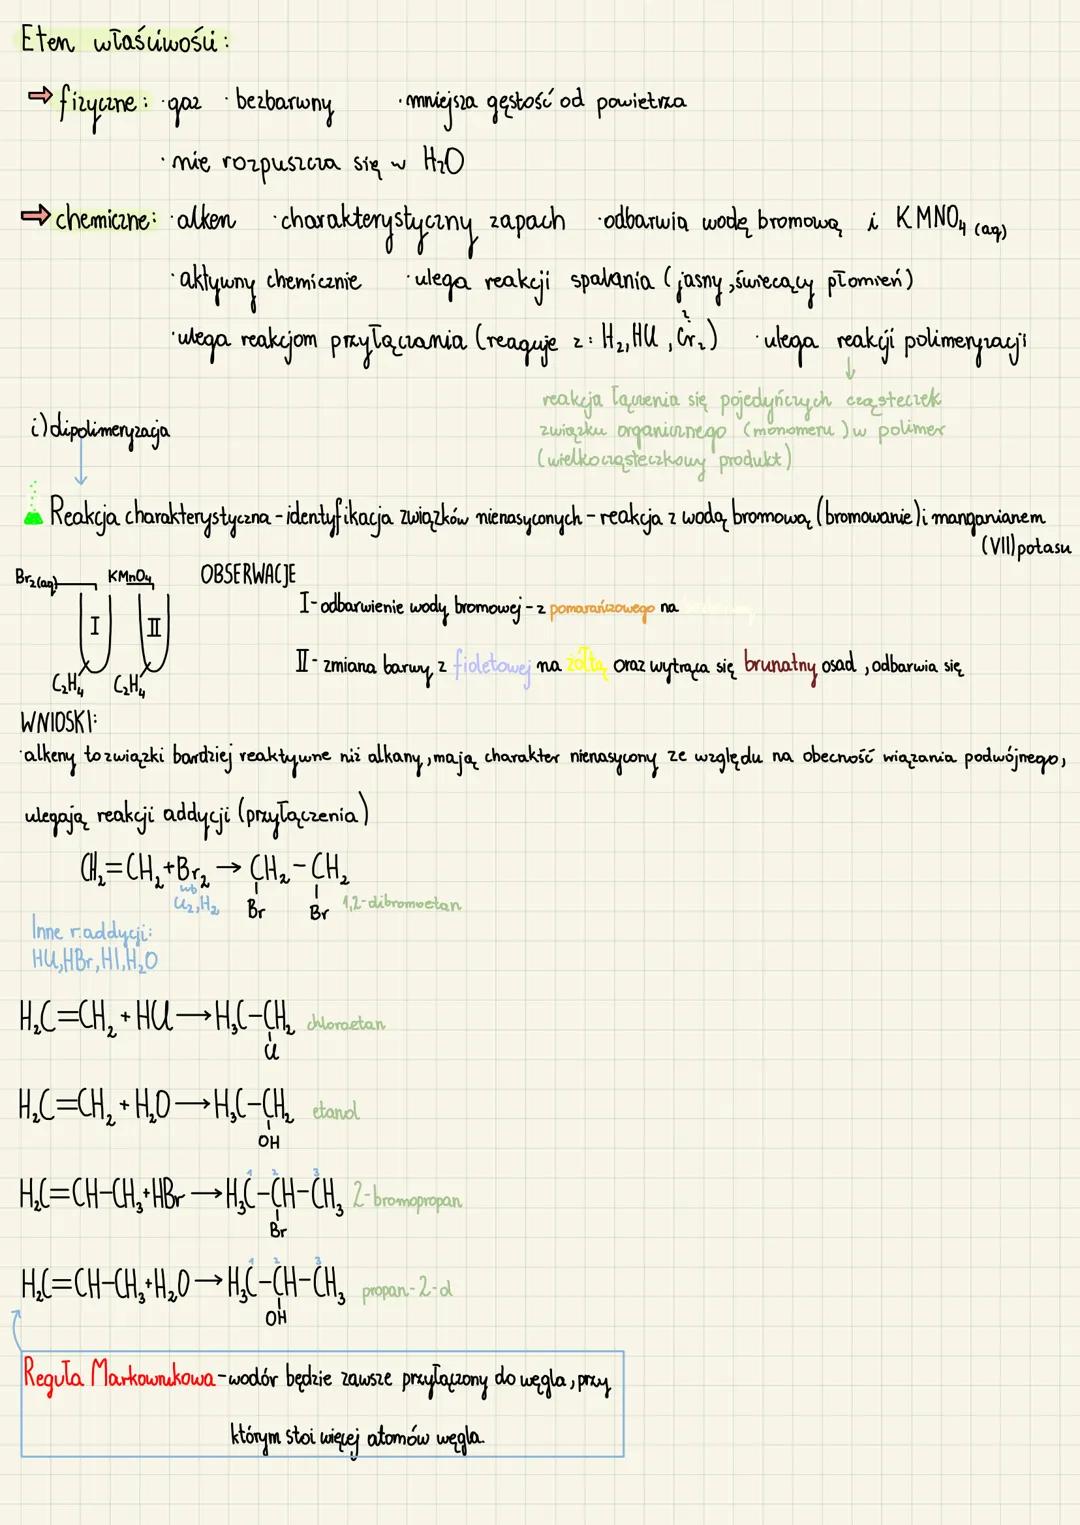 Eten właściwości:
⇒ fizyczne: · gaz · bezbarwny · mniejsza gęstość od powietrza
· nie rozpuszcza się w H₂O
⇒ chemiczne: · alken · charakterystyczny zapach · odbarwia wodę bromową i KMNO₄ (aq)
· aktywny chemicznie · ulega reakcji spalania (jasny, świecący płomień)
· ulega reakcjom przyłączania (reaguje z: H₂, HCl, Cr₂) · ulega reakcji polimeryzacji
?
reakcja łączenia się pojedyńczych cząsteczek
związku organicznego (monomeru) w polimer
(wielkocząsteczkowy produkt)
i) dipolimeryzacja
Reakcja charakterystyczna - identyfikacja związków nienasyconych - reakcja z wodą bromową (bromowanie) i manganianem
(VII) potasu
Br₂(aq) KMnO₄ OBSERWACJE
I II
C₂H₄ C₂H₄
I - odbarwienie wody bromowej - z pomarańczowego na
II - zmiana barwy z fioletowej na żółtą oraz wytrąca się brunatny osad, odbarwia się
WNIOSKI:
· alkeny to związki bardziej reaktywne niż alkany, mają charakter nienasycony ze względu na obecność wiązania podwójnego,
ulegają reakcji addycji (przyłączenia)
CH₂=CH₂+Br₂ → CH₂-CH₂
lub
Cl₂, H₂ Br Br 1,2-dibromoetan
Inne r. addycji:
HCl, HBr, HI, H₂O
H₂C=CH₂+HCl → H₃C-CH₂ chloroetan
Cl
H₂C=CH₂+H₂O → H₃C-CH₂ etanol
OH
1 2 3
H₂C=CH-CH₃+HBr → H₃C-CH-CH₃ 2-bromopropan
Br
1 2 3
H₂C=CH-CH₃+H₂O → H₃C-CH-CH₃ propan-2-ol
OH
Reguła Markownikowa - wodór będzie zawsze przyłączony do węgla, przy
którym stoi więcej atomów węgla.